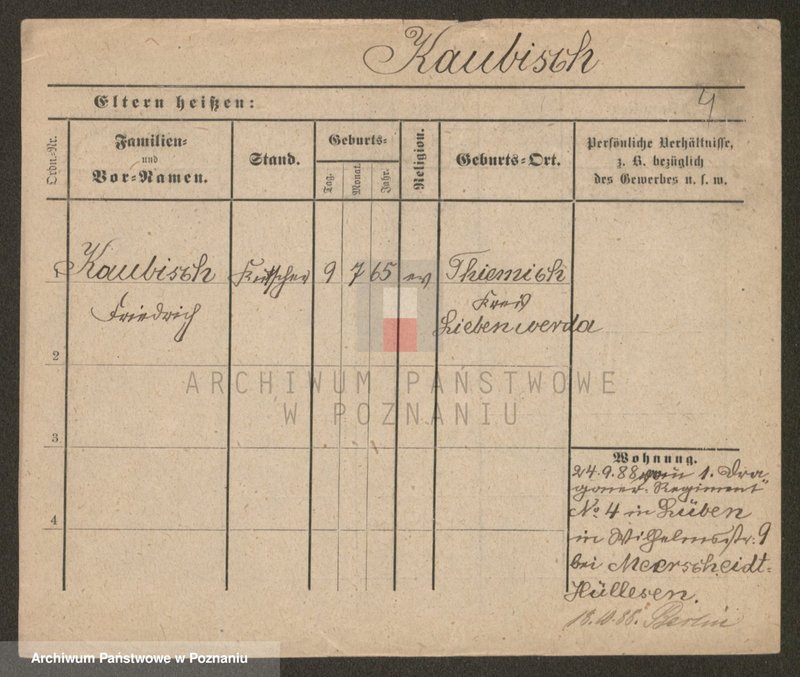 Kaubisch
4
Eltern heißen:
Ordn.-Nr.
Familien-
und
Vor-Namen.
Stand.
Geburts-
Tag.
Monat.
Jahr.
Religion.
Geburts-Ort.
Persönliche Verhältnisse,
z. B. bezüglich
des Gewerbes u. s. w.
1
Kaubisch
Friedrich
Kutscher
9
7
65
ev
Thiemisch
Kreis
Liebenwerda
2
3
4
ARCHIWUM PAŃSTWOWE
W POZNANIU
Wohnung.
24.9.88 vom 1. Dra-
goner-Regiment
No 4 in Lüben
in Wilhelmsstr. 9
bei Meerscheidt-
Hüllesen.
18.10.88. Berlin
Archiwum Państwowe w Poznaniu